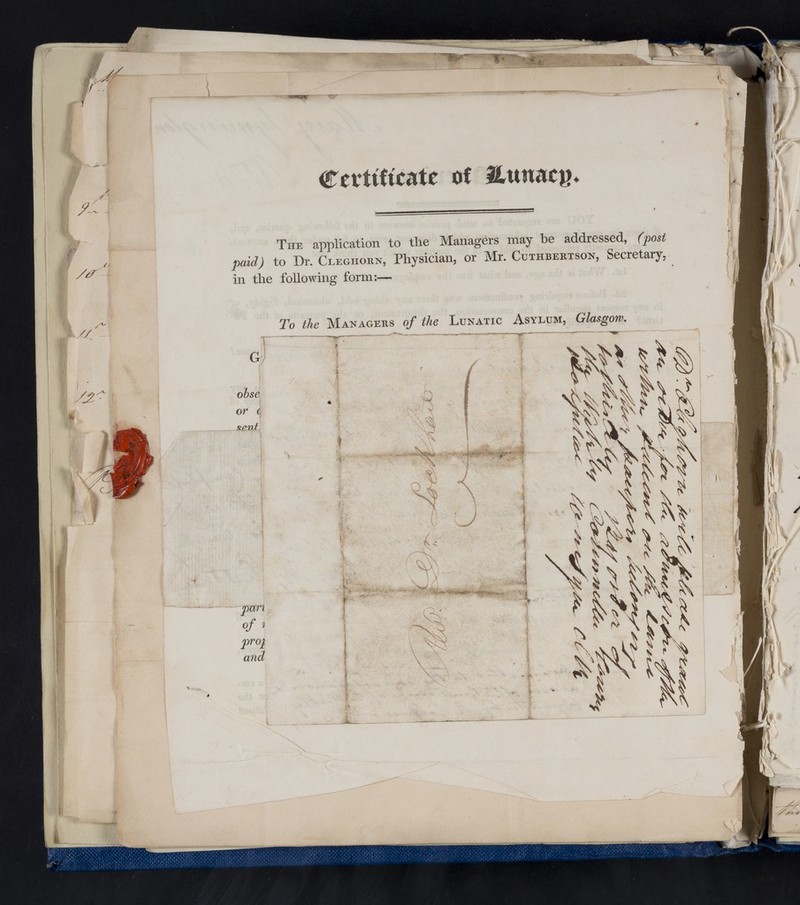 Certificate of Lunacy.
THE application to the Managers may be addressed, (post
paid) to Dr. CLEGHORN, Physician, or Mr. CUTHBERTSON, Secretary,
in the following form:—
To the MANAGERS of the LUNATIC ASYLUM, Glasgow.
G
obse
or
sent
par
of
prop
and
Dr. Lockhart
Dr. Cleghorn will please grant
an order for the admission of the
within patient on the same
as other paupers belonging
by order of
the Weekly Committee
Hospital
9
10
11
12